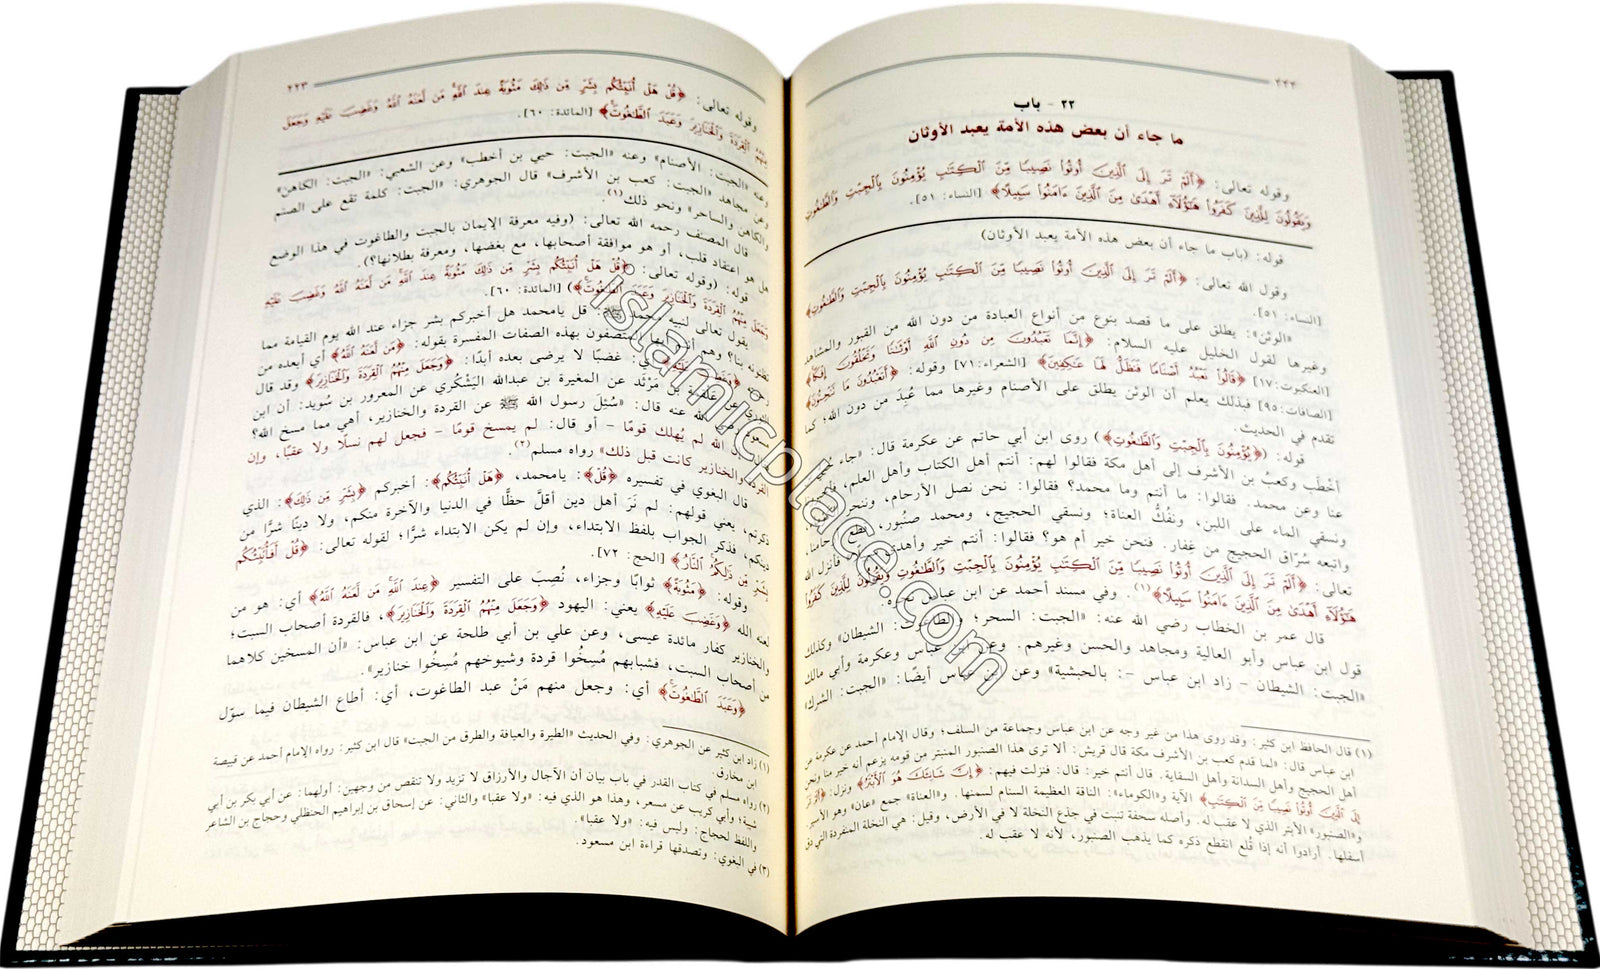 ٢٢٢
٢٢ - باب
ما جاء أن بعض هذه الأمة يعبد الأوثان
وقوله تعالى: ﴿أَلَمْ تَرَ إِلَى ٱلَّذِينَ أُوتُوا۟ نَصِيبًا مِّنَ ٱلْكِتَـٰبِ يُؤْمِنُونَ بِٱلْجِبْتِ وَٱلطَّـٰغُوتِ
وَيَقُولُونَ لِلَّذِينَ كَفَرُوا۟ هَـٰٓؤُلَآءِ أَهْدَىٰ مِنَ ٱلَّذِينَ ءَامَنُوا۟ سَبِيلًا﴾ [النساء: ٥١].
قوله: (باب ما جاء أن بعض هذه الأمة يعبد الأوثان)
وقول الله تعالى: ﴿أَلَمْ تَرَ إِلَى ٱلَّذِينَ أُوتُوا۟ نَصِيبًا مِّنَ ٱلْكِتَـٰبِ يُؤْمِنُونَ بِٱلْجِبْتِ وَٱلطَّـٰغُوتِ﴾
[النساء: ٥١].
«الوثن»: يطلق على ما قصد بنوع من أنواع العبادة من دون الله من القبور والمشاهد
وغيرها لقول الخليل عليه السلام: ﴿إِنَّمَا تَعْبُدُونَ مِن دُونِ ٱللَّهِ أَوْثَـٰنًا وَتَخْلُقُونَ إِفْكًا﴾
[العنكبوت: ١٧] ﴿قَالُوا۟ نَعْبُدُ أَصْنَامًا فَنَظَلُّ لَهَا عَـٰكِفِينَ﴾ [الشعراء: ٧١] وقوله: ﴿أَتَعْبُدُونَ مَا تَنْحِتُونَ﴾
[الصافات: ٩٥] فبذلك يعلم أن الوثن يطلق على الأصنام وغيرها مما عُبِدَ من دون الله؛ كما
تقدم في الحديث.
قوله: (﴿يُؤْمِنُونَ بِٱلْجِبْتِ وَٱلطَّـٰغُوتِ﴾) روى ابن أبي حاتم عن عكرمة قال: «جاء حُيي بن
أخْطَب وكعبُ بن الأشرف إلى أهل مكة فقالوا لهم: أنتم أهل الكتاب وأهل العلم،
عنا وعن محمد. فقالوا: ما أنتم وما محمد؟ فقالوا: نحن نصل الأرحام، وننحر
ونسقي الماء على اللبن، ونفُكُّ العناة؛ ونسقي الحجيج، ومحمد صنْبُور، قطع أرحامنا،
واتبعه سُرّاق الحجيج من غفار. فنحن خير أم هو؟ فقالوا: أنتم خير وأهدى فأنزل الله
تعالى: ﴿أَلَمْ تَرَ إِلَى ٱلَّذِينَ أُوتُوا۟ نَصِيبًا مِّنَ ٱلْكِتَـٰبِ يُؤْمِنُونَ بِٱلْجِبْتِ وَٱلطَّـٰغُوتِ وَيَقُولُونَ لِلَّذِينَ كَفَرُوا۟
هَـٰٓؤُلَآءِ أَهْدَىٰ مِنَ ٱلَّذِينَ ءَامَنُوا۟ سَبِيلًا﴾(١). وفي مسند أحمد عن ابن عباس نحوه.
قال عمر بن الخطاب رضي الله عنه: «الجبت: السحر؛ والطاغوت: الشيطان» وكذلك
قول ابن عباس وأبو العالية ومجاهد والحسن وغيرهم. وعن ابن عباس وعكرمة وأبي مالك
«الجبت: الشيطان - زاد ابن عباس -: بالحبشية» وعن ابن عباس أيضًا: «الجبت: الشرك»
(١) قال الحافظ ابن كثير: وقد روى هذا من غير وجه عن ابن عباس وجماعة من السلف؛ وقال الإمام أحمد عن عكرمة عن
ابن عباس قال: «لما قدم كعب بن الأشرف مكة قال قريش: ألا ترى هذا الصنبور المنبتر من قومه يزعم أنه خير منا ونحن
أهل الحجيج وأهل السدانة وأهل السقاية. قال أنتم خير: قال: فنزلت فيهم: ﴿إِنَّ شَانِئَكَ هُوَ ٱلْأَبْتَرُ﴾ ونزل: ﴿أَلَمْ تَرَ
إِلَى ٱلَّذِينَ أُوتُوا۟ نَصِيبًا مِّنَ ٱلْكِتَـٰبِ﴾ الآية و«الكوماء»: الناقة العظيمة السنام لسمنها. و«العناة» جمع «عان» وهو الأسير.
و«الصنبور» الأبتر الذي لا عقب له. وأصله سحفة تنبت في جذع النخلة لا في الأرض، وقيل: هي النخلة المنفردة التي دق
أسفلها. أرادوا أنه إذا قُلع انقطع ذكره كما يذهب الصنبور، لأنه لا عقب له.
٢٢٣
وقوله تعالى: ﴿قُلْ هَلْ أُنَبِّئُكُم بِشَرٍّ مِّن ذَٰلِكَ مَثُوبَةً عِندَ ٱللَّهِ مَن لَّعَنَهُ ٱللَّهُ وَغَضِبَ عَلَيْهِ وَجَعَلَ
مِنْهُمُ ٱلْقِرَدَةَ وَٱلْخَنَازِيرَ وَعَبَدَ ٱلطَّـٰغُوتَ﴾ [المائدة: ٦٠].
وعنه «الجبت: الأصنام» وعنه «الجبت: حيي بن أخطب» وعن الشعبي: «الجبت: الكاهن»
وعن مجاهد «الجبت: كعب بن الأشرف» قال الجوهري: «الجبت: كلمة تقع على الصنم
والكاهن والساحر» ونحو ذلك(١).
قال المصنف رحمه الله تعالى: (وفيه معرفة الإيمان بالجبت والطاغوت في هذا الوضع
هل هو اعتقاد قلب، أو هو موافقة أصحابها، مع بغضها، ومعرفة بطلانها؟).
قوله: (وقوله تعالى: ﴿قُلْ هَلْ أُنَبِّئُكُم بِشَرٍّ مِّن ذَٰلِكَ مَثُوبَةً عِندَ ٱللَّهِ مَن لَّعَنَهُ ٱللَّهُ وَغَضِبَ عَلَيْهِ
وَجَعَلَ مِنْهُمُ ٱلْقِرَدَةَ وَٱلْخَنَازِيرَ وَعَبَدَ ٱلطَّـٰغُوتَ﴾) [المائدة: ٦٠].
يقول تعالى لنبيه محمد ﷺ: قل يامحمد هل أخبركم بشر جزاء عند الله يوم القيامة مما
تظنونه بنا؟ وهم أنتم المتصفون بهذه الصفات المفسرة بقوله: ﴿مَن لَّعَنَهُ ٱللَّهُ﴾ أي أبعده من
رحمته ﴿وَغَضِبَ عَلَيْهِ﴾ أي: غضبًا لا يرضى بعده أبدًا: ﴿وَجَعَلَ مِنْهُمُ ٱلْقِرَدَةَ وَٱلْخَنَازِيرَ﴾ وقد قال
الثوري عن علقمة بن مَرْثَد عن المغيرة بن عبدالله اليَشْكُري عن المعرور بن سُويد: أن ابن
مسعود رضي الله عنه قال: «سُئِلَ رسول الله ﷺ عن القردة والخنازير، أهي مما مسخ الله؟
الله لم يُهلك قومًا - أو قال: لم يمسخ قومًا - فجعل لهم نسلًا ولا عقبًا، وإن
القردة والخنازير كانت قبل ذلك» رواه مسلم(٢).
قال البغوي في تفسيره ﴿قُلْ﴾: يامحمد، ﴿هَلْ أُنَبِّئُكُم﴾: أخبركم ﴿بِشَرٍّ مِّن ذَٰلِكَ﴾: الذي
ذكرتم، يعني قولهم: لم نَرَ أهل دين أقلَّ حظًّا في الدنيا والآخرة منكم، ولا دينًا شرًّا من
دينكم، فذكر الجواب بلفظ الابتداء، وإن لم يكن الابتداء شرًّا؛ لقوله تعالى: ﴿قُلْ أَفَأُنَبِّئُكُم
بِشَرٍّ مِّن ذَٰلِكُمُ ٱلنَّارُ﴾ [الحج: ٧٢].
وقوله: ﴿مَثُوبَةً﴾ ثوابًا وجزاء، نُصِبَ على التفسير ﴿عِندَ ٱللَّهِ مَن لَّعَنَهُ ٱللَّهُ﴾ أي: هو من
لعنه الله ﴿وَغَضِبَ عَلَيْهِ﴾ يعني: اليهود ﴿وَجَعَلَ مِنْهُمُ ٱلْقِرَدَةَ وَٱلْخَنَازِيرَ﴾، فالقردة أصحاب السبت؛
والخنازير كفار مائدة عيسى، وعن علي بن أبي طلحة عن ابن عباس: «أن المسخين كلاهما
من أصحاب السبت، فشبابهم مُسِخُوا قردة وشيوخهم مُسِخُوا خنازير».
﴿وَعَبَدَ ٱلطَّـٰغُوتَ﴾ أي: وجعل منهم مَنْ عبد الطاغوت، أي: أطاع الشيطان فيما سوّل
(١) زاد ابن كثير عن الجوهري: وفي الحديث «الطيرة والعيافة والطرق من الجبت» قال ابن كثير: رواه الإمام أحمد عن قبيصة
ابن مخارق.
(٢) رواه مسلم في كتاب القدر في باب بيان أن الآجال والأرزاق لا تزيد ولا تنقص من وجهين: أولهما: عن أبي بكر بن أبي
شيبة؛ وأبي كريب عن مسعر، وهذا هو الذي فيه: «ولا عقبا» والثاني: عن إسحاق بن إبراهيم الحنظلي وحجاج بن الشاعر
واللفظ لحجاج: وليس فيه: «ولا عقبا».
(٣) في البغوي: وتصدقها قراءة ابن مسعود.
islamicplace.com